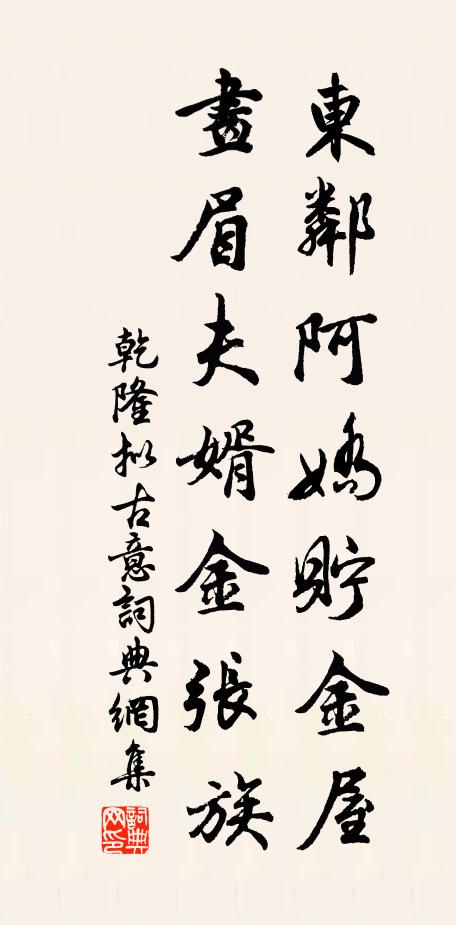 東鄰阿嬌貯金屋
畫眉夫婿金張族
乾隆擬古意詞典網集
詞典网印